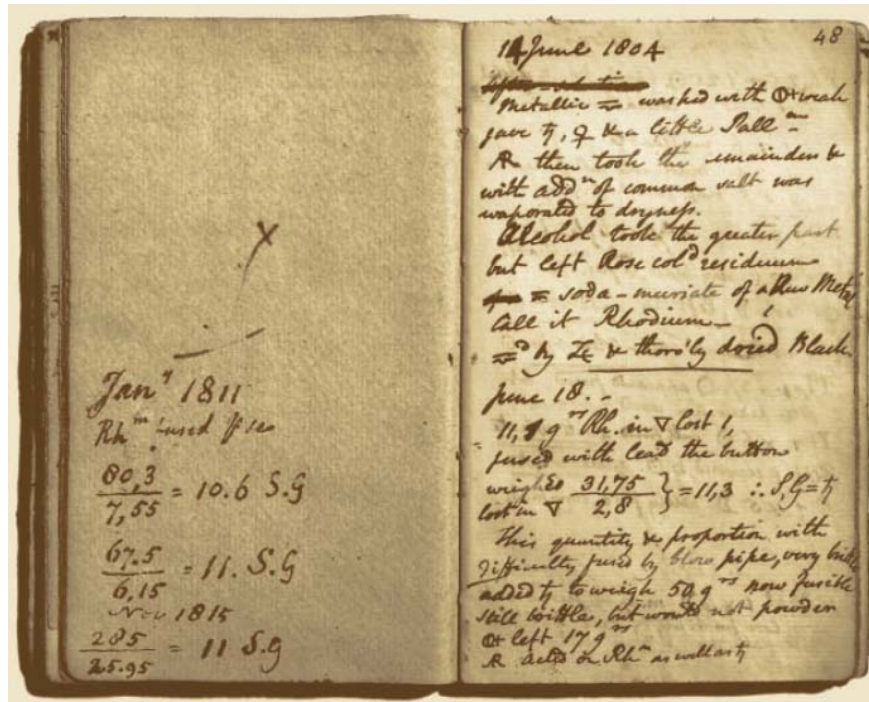 Janʸ 1811
Rhᵐ fused pr se
80,3 / 7,55 = 10.6 S.G
67.5 / 6,15 = 11. S.G
Nov 1815
285 / 25.95 = 11 S.G
48
14 June 1804
Metallic washed with weak
gave ♄, ♀ & a little Pallᵐ
then took the remainder &
with addⁿ of common salt was
evaporated to dryness.
Alcohol took the greater part
but left Rose colᵈ residuum
= soda-muriate of a New Metal
Call it Rhodium
by & thoro'ly dried Black.
June 18. -
11,1 gʳˢ Rh. in ▽ lost 1,
fused with lead the button
weighed 31,75 } = 11,3 ∴ S,G = ♄
lost in ▽ 2,8
This quantity & proportion with
difficulty fused by blow pipe, very brittle
added ♄ to weigh 50 gʳˢ now fusible
still brittle, but would not powder
left 17 gʳˢ
acted on Rhᵐ as well as ♄